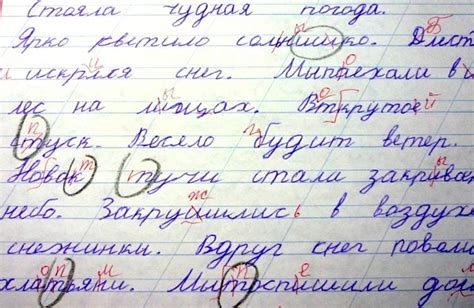 Стояла чудная погода.
Ярко кветило солнышко. Дист
искрился снег. Мипоехали в
лес на лыщах. Вткрутое й
туск. Весело будит ветер.
Новак тучи стали закрыва
небо. Закрушились в воздухе
снежинки. Вдруг снег повали
хлатьяни. Мытоспишили до